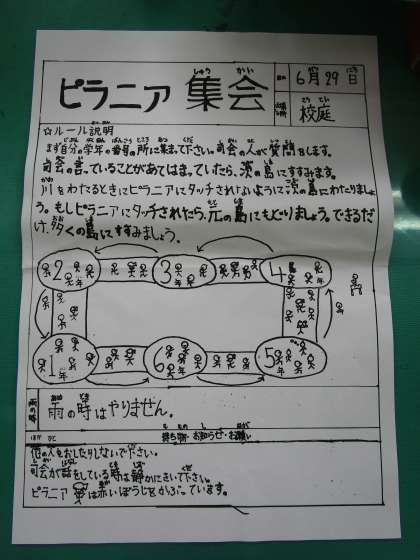 ピラニア 集会
6月29日
校庭
☆ルール説明
まず自分の学年の番号の所に集まって下さい。司会の人が質問をします。
司会の言っていることがあてはまっていたら、次の島にすすみます。
川をわたるときにピラニアにタッチされないように次の島にわたりましょ
う。もしピラニアにタッチされたら、元の島にもどりましょう。できるだ
け、多くの島にすすみましょう。
2年
3年
4年
1年
6年
5年
雨の時
雨の時はやりません。
持ち物・お知らせ・お願い
他の人をおしたりしないで下さい。
司会が話をしている時は静かにきいて下さい。
ピラニア は赤いぼうしをかぶっています。